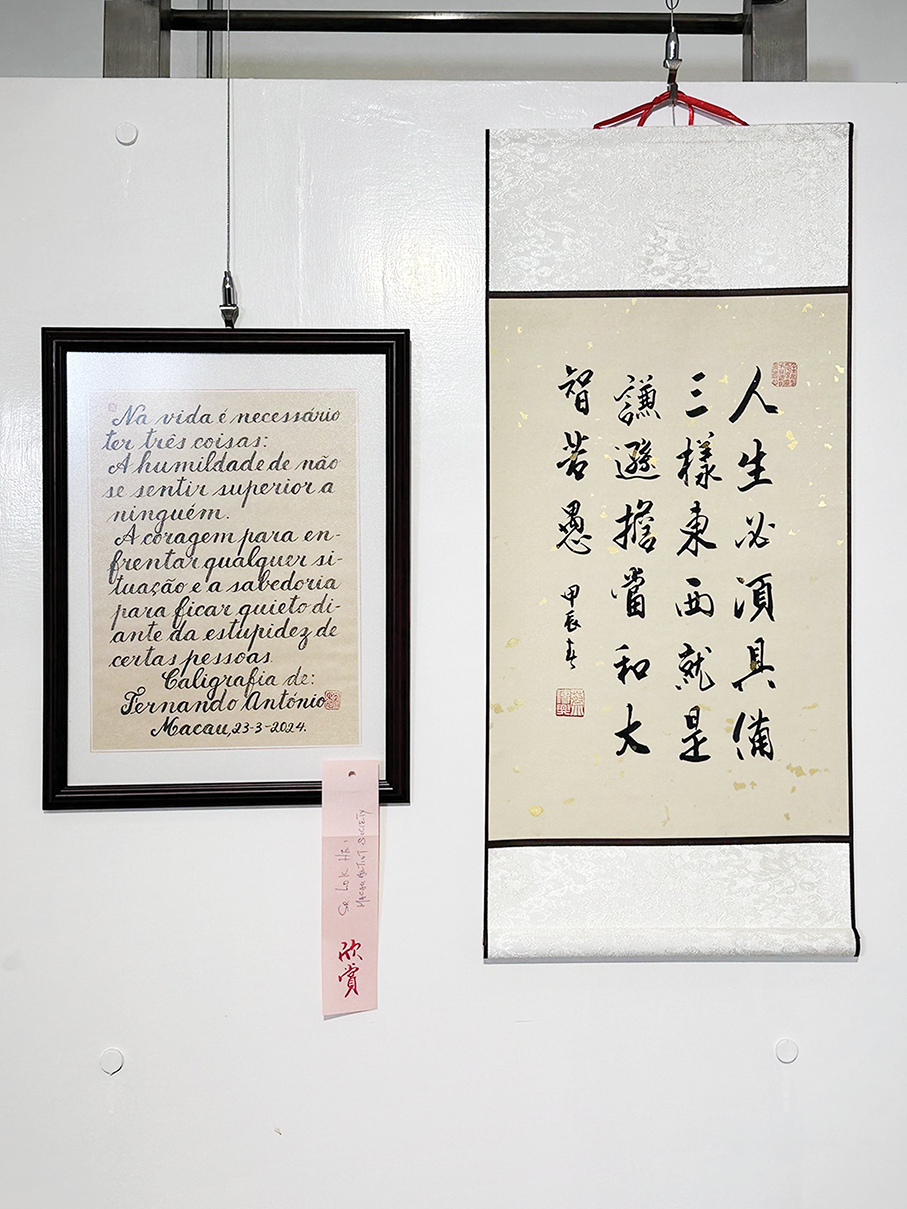 Na vida é necessário
ter três coisas:
A humildade de não
se sentir superior a
ninguém.
A coragem para en-
frentar qualquer si-
tuação e a sabedoria
para ficar quieto di-
ante da estupidez de
certas pessoas.
Caligrafia de:
Fernando António
Macau, 23-3-2024.
MACAU ARTIST SOCIETY
欣賞
人生必須具備
三樣東西就是
謙遜擔當和大
智若愚
甲辰春